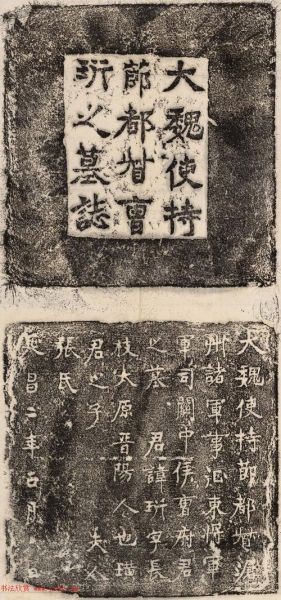 大魏使持
節都督曹
沂之墓誌
大魏使持節都督
州諸軍事征東將軍
軍司關中侯曹府君
之墓 君諱 字長
枝大原晉陽人也
君之子 夫
張氏
延昌二年 月
书法欣赏